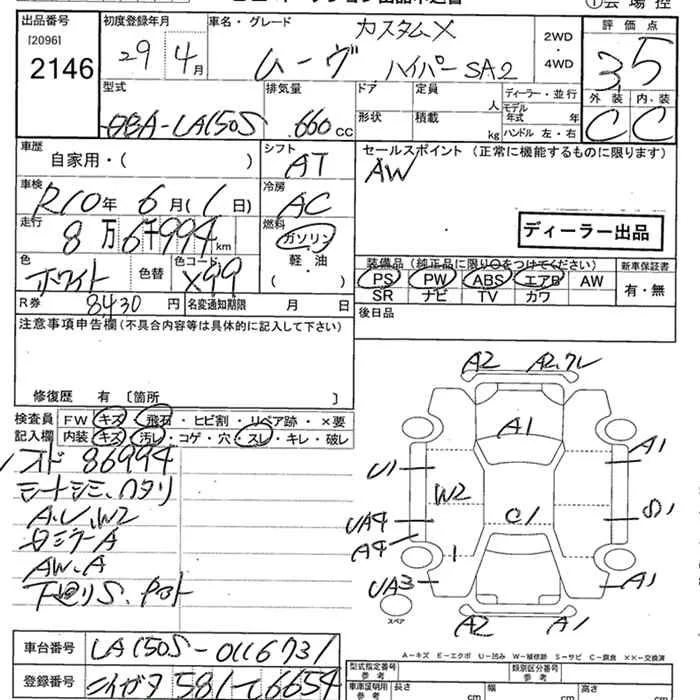 出品番号 初度登録年月 車名・グレード カスタムX 評価点
[2096] 2146 29年 4月 ムーヴ ハイパーSA2 2WD・4WD 3.5
型式 排気量 ドア 定員 人 ディーラー・並行 外装 内装
DBA-LA150S 660CC 形状 積載 kg モデル年式 年 ハンドル 左・右 C C
車歴 自家用・( ) シフト AT セールスポイント(正常に機能するものに限ります)
AW
車検 R10年 6月( 日) 冷房 AC
走行 8万6千994km 燃料 ガソリン・軽油 ( ・ ) ディーラー出品
色 ホワイト 色替 色コード X99 装備品(純正品に限り○をつけてください) 新車保証書
PS PW ABS エアB AW 有・無
SR ナビ TV カワ
R券 8430円 名変通知期限 月 日 後日品
注意事項申告欄(不具合内容等は具体的に記入して下さい)
修復歴 有 〔箇所 〕
検査員 FW キズ・飛石・ヒビ割・リペア跡・×要
記入欄 内装 キズ・汚レ・コゲ・穴・スレ・キレ・破レ
オド 86994
シートシミ、ヘタリ
A.U.W2
AW.A
A2 A2.
A1 A1
U1
W2
UA4 C1
A4 1
UA3 A1
A2 A1
スペア
A-キズ E-エクボ U-凹み W-補修跡 S-サビ C-腐食 ××-交換済
車台番号 LA150S-0116731 型式指定番号 参考 類別区分番号 参考
登録番号 ニイガタ 581 6654 車庫証明用 参考 長さ cm 幅 cm 高さ cm